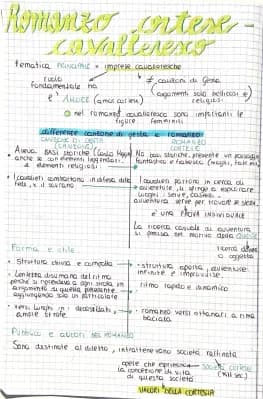 Romanzo cortese -
cavalleresco
tematica PRINCIPALE = imprese cavalleresche
ruolo
fondamentale ha
≠ canzoni di gesta
(argomenti solo bellicosi e
religiosi
è l'AMORE (amor cortese)
nel romanzo cavalleresco sono importanti le
figure femminili
differenze canzone di gesta e romanzo
CANZONE DI GESTA
ROMANZO
CORTESE
Aveva BASI storiche (Carlo Magno)
anche se con elementi leggendari
e elementi religiosi
No basi storiche, presente un paesaggio
fantastico e fiabesco
I cavalieri combattono in difesa della
fede, x il sovrano
I cavalieri partono in cerca di
avventure, si spinge a esplorare
luoghi, selve, castelli
avventura serve per trovare se stessi
è una PROVA INDIVIDUALE
La ricerca casuale di avventura
è mossa dal motivo della
ricerca di
o oggetto
Forma e stile
Struttura chiusa e compatta
struttura aperta, avventure
infinite e improvvise
Lentezza disumana del ritmo
perché si riprendeva a ogni strofa un
argomento di quella precedente
aggiungendo solo un particolare
ritmo rapido e dinamico
versi lunghi in decasillabi,
ampie strofe
romanzo versi ottonari a rima
baciata
Pubblico e autori DEL ROMANZO
Sono destinate al diletto, intrattenevano società raffinata
opere che esprimevano
la concezione di vita
di questa società
SOCIETÀ CORTESE
(XII sec.)
VALORI DELLA CORTESIA